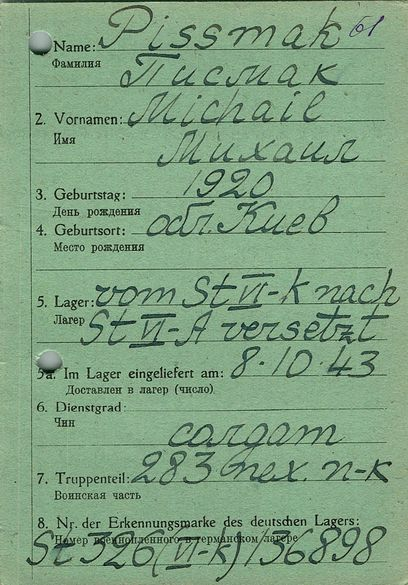 1. Name: Pissmak 61
Фамилия Писмак
2. Vornamen: Michail
Имя
Михаил
3. Geburtstag: 1920
День рождения
4. Geburtsort: обл. Киев
Место рождения
5. Lager: vom St VI-K nach
Лагер St VI-A versetzt
5a. Im Lager eingeliefert am: 8.10.43
Доставлен в лагер (число)
6. Dienstgrad:
Чин
солдат
7. Truppenteil: 283 пех. п-к
Воинская часть
8. Nr. der Erkennungsmarke des deutschen Lagers:
Номер военнопленного в германском лагере
St 326 (VI-K) 136898